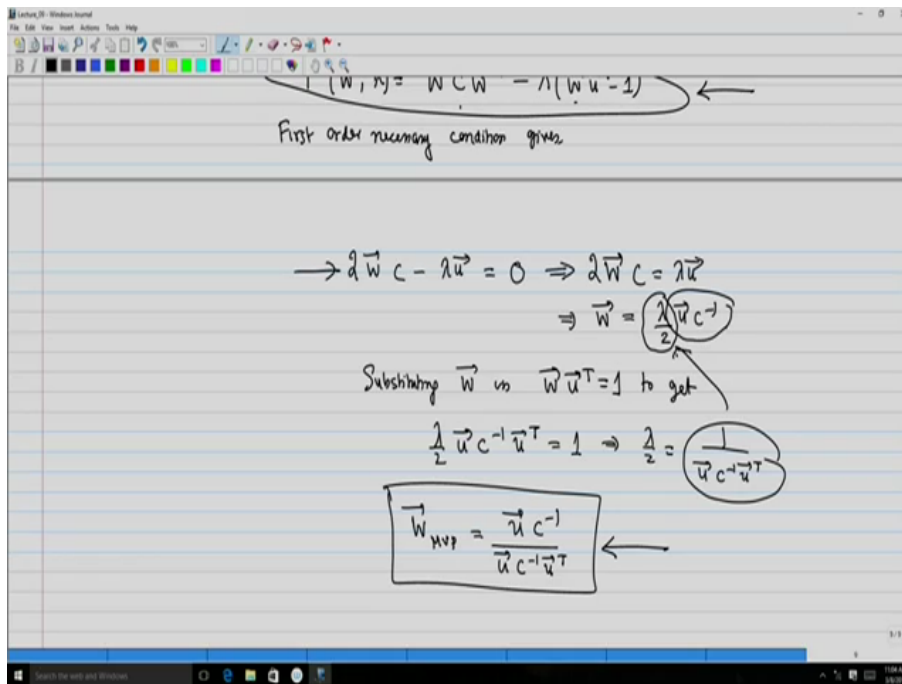 Lecture_09 - Windows Journal
File Edit View Insert Actions Tools Help
F(W, λ) = W C W - λ(W u - 1)
First order necessary condition gives
→ 2w⃗ C - λu⃗ = 0 ⇒ 2w⃗ C = λu⃗
⇒ w⃗ = λ/2 u⃗ C⁻¹
Substituting w⃗ in w⃗ u⃗ᵀ = 1 to get
λ/2 u⃗ C⁻¹ u⃗ᵀ = 1 ⇒ λ/2 = 1/(u⃗ C⁻¹ u⃗ᵀ)
w⃗ MVP = u⃗ C⁻¹/(u⃗ C⁻¹ u⃗ᵀ) ←
9/9
9
Search the web and Windows